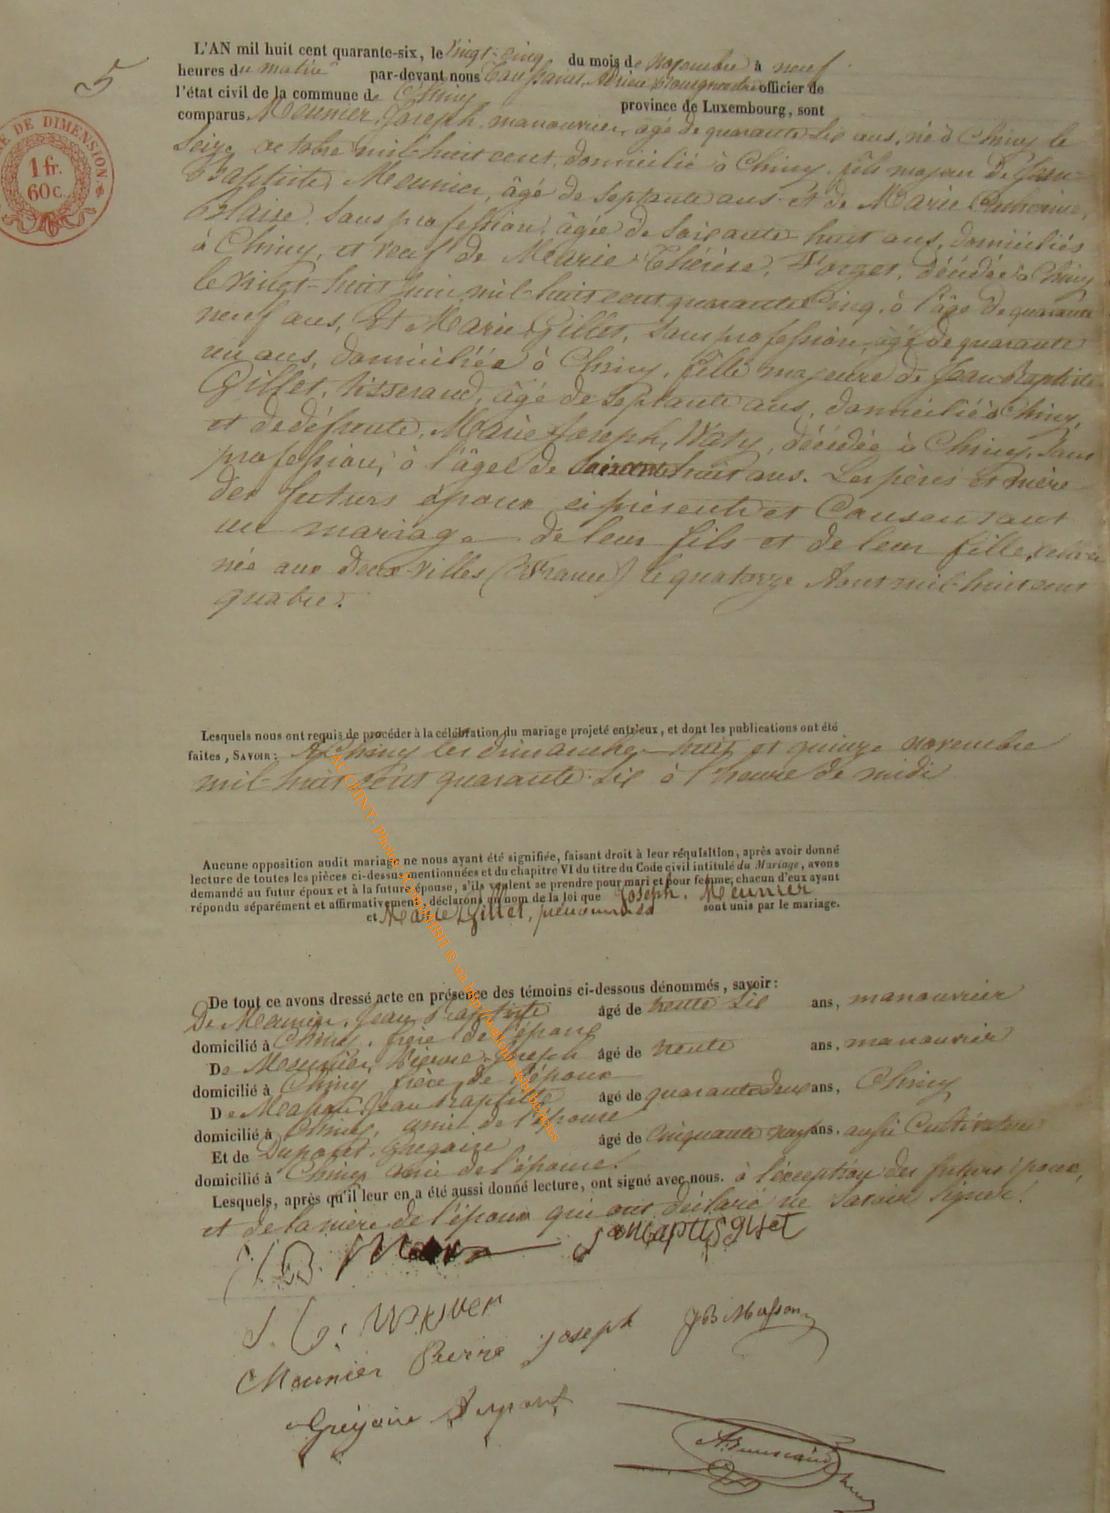 5
E DE DIMENSION
1 fr.
60 c.
L'AN mil huit cent quarante-six, le vingt-cinq du mois de novembre à neuf
heures du matin par-devant nous officier de
l'état civil de la commune de Chiny province de Luxembourg, sont
comparus, Meunier, Joseph, manouvrier, âgé de quarante six ans, né à Chiny le
seize octobre mil huit cent, domicilié à Chiny, fils majeur de Jean
Baptiste Meunier, âgé de septante ans et de Marie Catherine,
Blaise, sans profession, âgée de soixante huit ans, domiciliés
à Chiny, et veuf de Marie Thérèse, Forget, décédée à Chiny
le vingt-huit juin mil huit cent quarante cinq, à l'âge de quarante
neuf ans, Et Marie Gillet, sans profession, âgé de quarante
un ans, domiciliée à Chiny, fille majeure de Jean Baptiste
Gillet, tisserand, âgé de septante ans, domicilié à Chiny,
et de défunte, Marie Joseph, Waty, décédée à Chiny, sans
profession, à l'âge de soixante huit ans. Les pères et mère
des futurs époux ci présents et consentant
au mariage de leur fils et de leur fille,
née aux deux villes (France) le quatorze Aout mil huit cent
quatre.
Lesquels nous ont requis de procéder à la célébration du mariage projeté entr'eux, et dont les publications ont été
faites, SAVOIR: A Chiny les dimanche huit et quinze novembre
mil huit cent quarante six à l'heure de midi
Aucune opposition audit mariage ne nous ayant été signifiée, faisant droit à leur réquisition, après avoir donné
lecture de toutes les pièces ci-dessus mentionnées et du chapitre VI du titre du Code civil intitulé du Mariage, avons
demandé au futur époux et à la future épouse, s'ils veulent se prendre pour mari et pour femme; chacun d'eux ayant
répondu séparément et affirmativement, déclarons au nom de la loi que Joseph. Meunier
et Marie Gillet, prénommés sont unis par le mariage.
De tout ce avons dressé acte en présence des témoins ci-dessous dénommés, savoir:
De Meunier, Jean Baptiste âgé de trente six ans, manouvrier
domicilié à Chiny, frère de l'époux
De Meunier, Pierre Joseph âgé de trente ans, manouvrier
domicilié à Chiny frère de l'époux
De Masson Jean Baptiste âgé de quarante deux ans, Chiny
domicilié à Chiny, ami de l'épouse
Et de Dupont, Grégoire âgé de cinquante ans, aussi Cultivateur
domicilié à Chiny ami de l'épouse.
Lesquels, après qu'il leur en a été aussi donné lecture, ont signé avec nous. à l'exception des futurs époux,
et de la mère de l'époux qui ont déclaré ne savoir signer.
J B.
J B Masson
Meunier Pierre Joseph
Grégoire Dupont